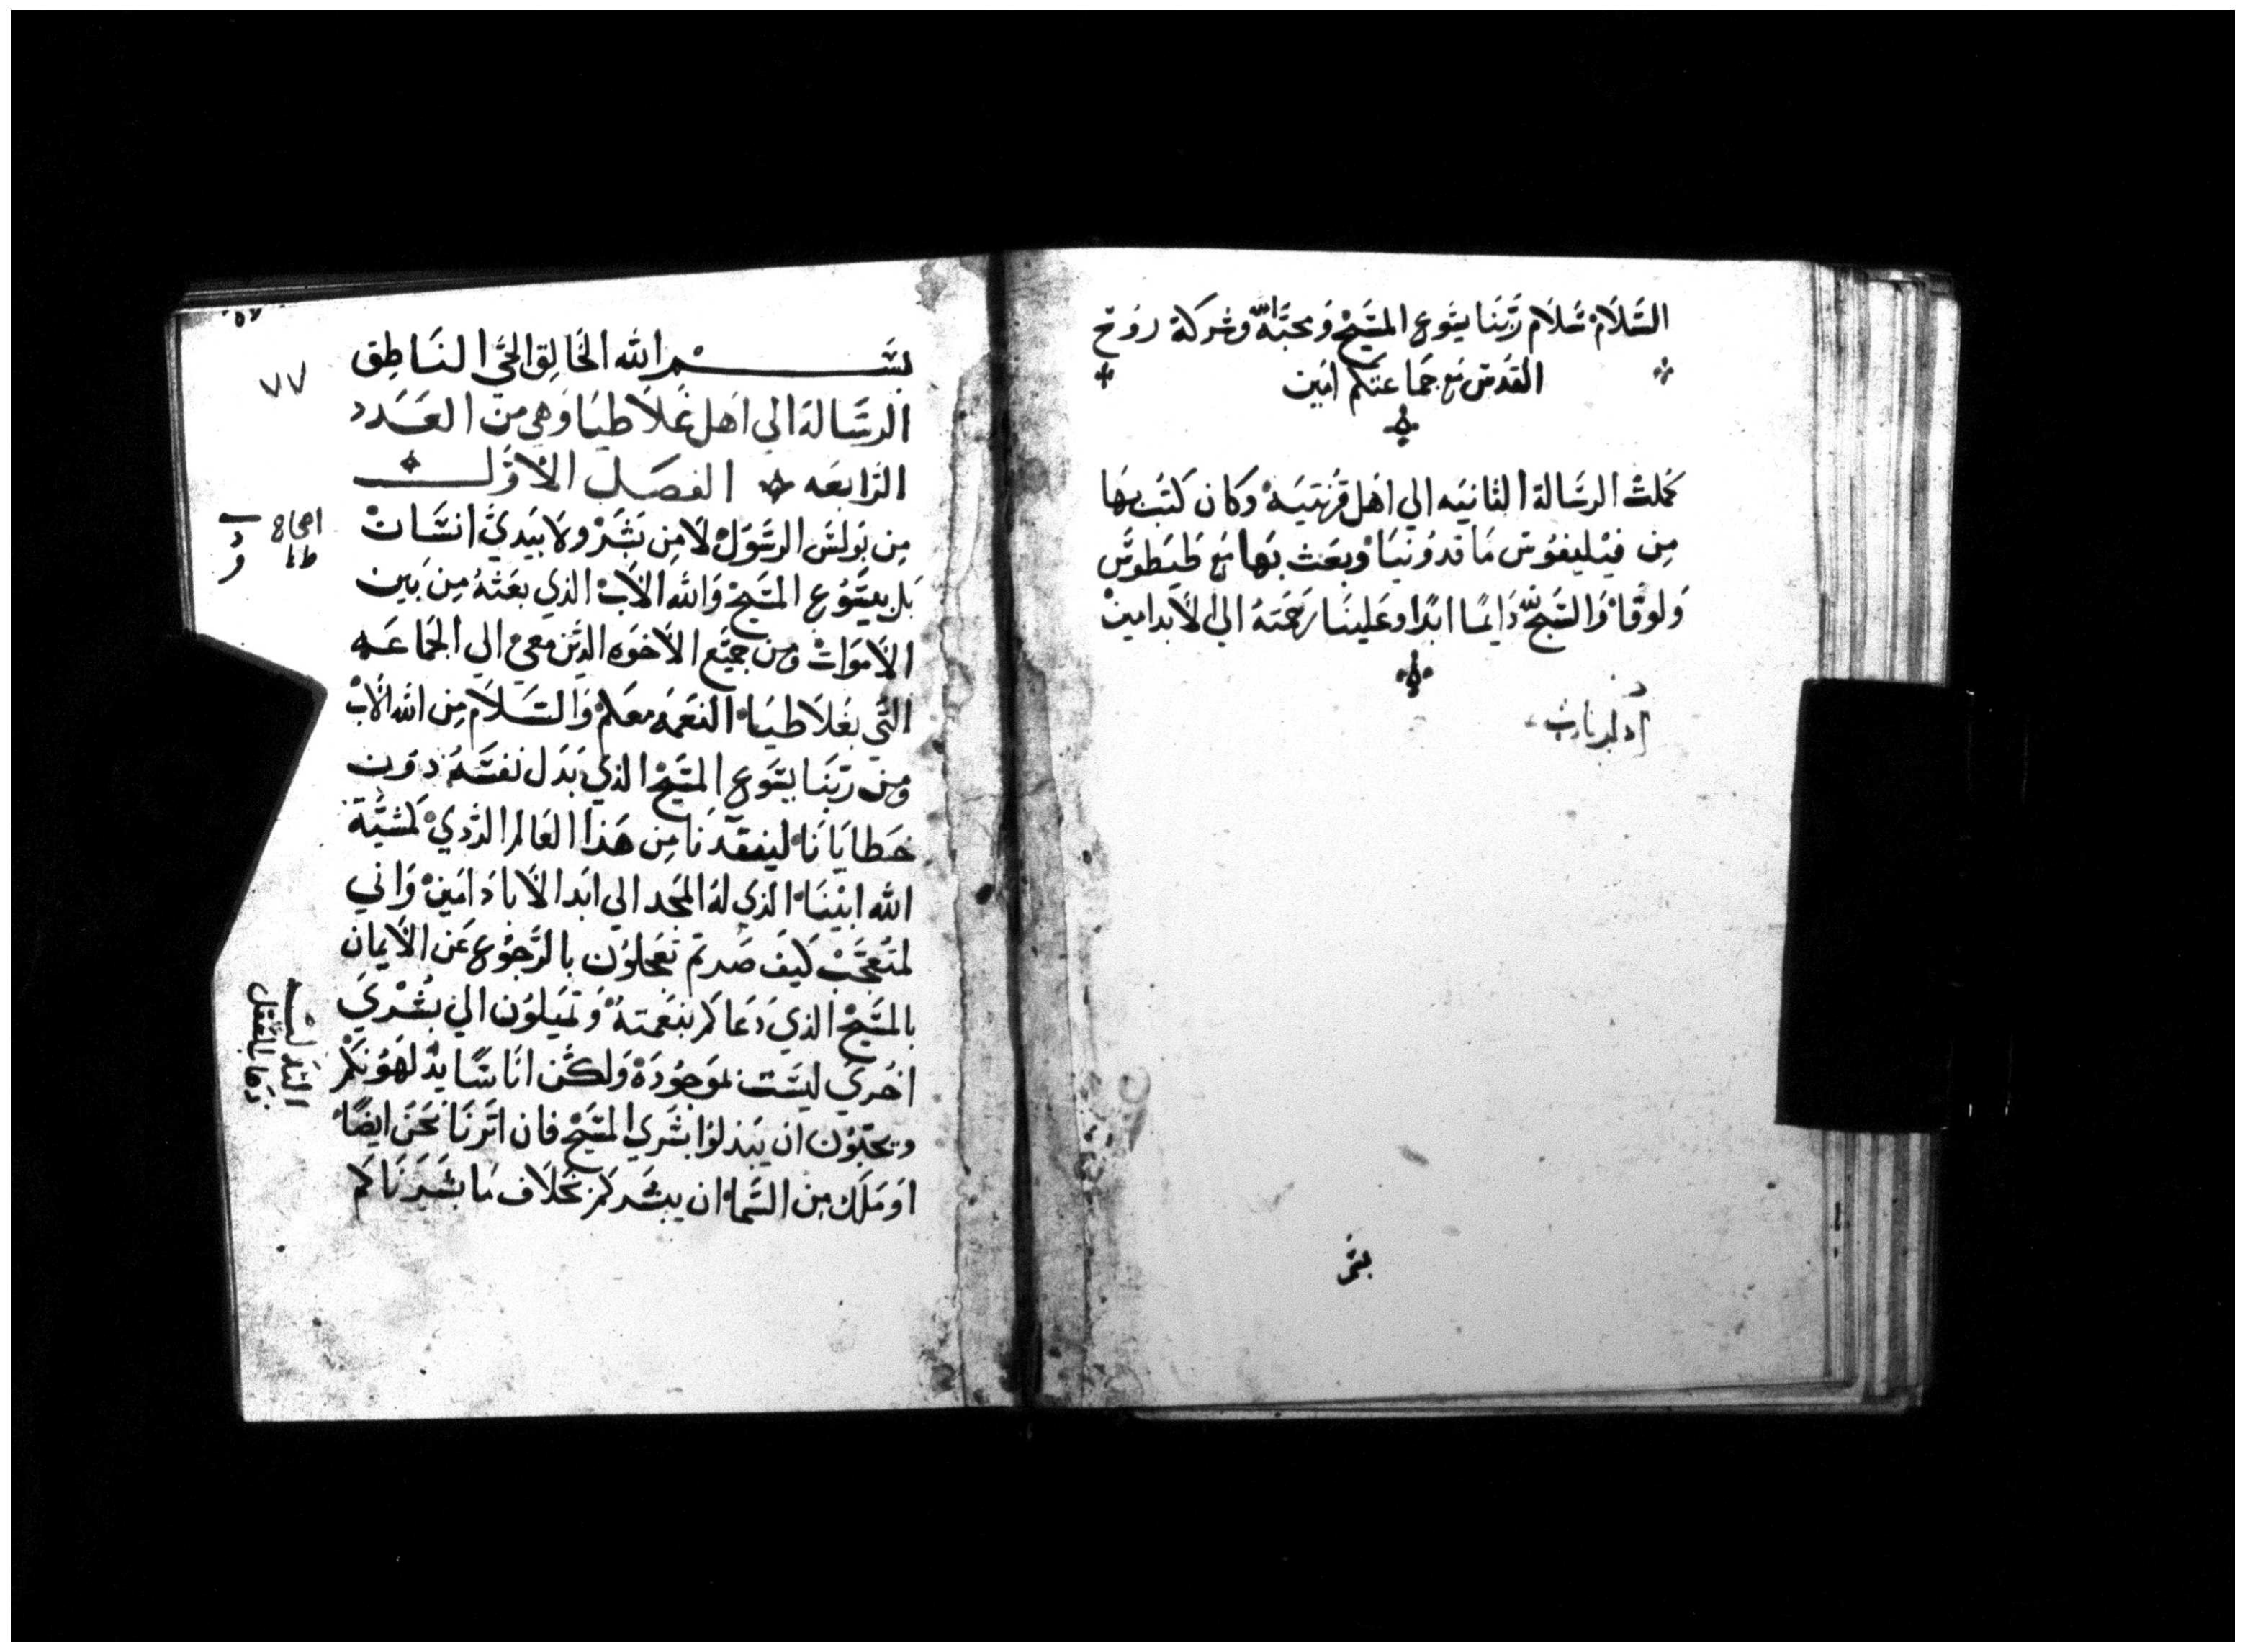 السَّلَام سَلَام ربَّنا يسَوع المسَيح وَمحبَّة الله وشركة روُح
القدس مع جماعتكم امَين
كملت الرسَالة الثانيَه الي اهَل قرنتيَة وَكان كتب بها
من فيليفوس مَاقدونيَا وبعَث بهَا مع طيطوسَ
وَلوقا وَالسَبح لله دَايمًا ابدًا وعَلينَا رَحمَتهُ الي الأبد امين
بسَم الله الخَالِق الحَّي النَاطِق
الرسَالة الي اهَل غَلاَطيَا وَهي من العَدَد
الرَابعَه الفصَل الأوَل
من بَولسَ الرسَوَل لَا من بَشَر ولا بيَدي انسَان
بَل بيسَوُع المسَيح وَالله الآب الذي بعَثهُ من بَين
الأموَات ومن جميَع الأخوَه الذَين معي الي الجمَاعَه
التَي بغَلَاطيَا النعَمَه معَكم وَالسَلَام من الله الآب
ومن ربَنَا يسَوَع المسَيح الذي بَدَل نفسَهُ دوَن
خَطايَانَا لينقدنَا من هَذا العَالم الرَدي كمشيَّة
الله ابيَنَا الذي لهَ المجَد الي ابَد الأبَاد امَين وَاني
لمتَعجَب كيَف صَرتم تعَجلوُن بالرَجوُع عَن الأيمان
بالمسَيح الذي دَعَاكم بنعَمتهُ وَتميلوُن الي بُشرَي
اخُري ليسَت بموَجوُدَة وَلكن انَاسًا يدلهَوُنكم
ويحبَوُن ان يَبدلوُا بشَري المسَيح فان اتَرنَا نحَن ايضًا
اوَ مَلَاك من السَمَا ان يبشَركم بخلَاف مَا بشَرنَاكم
اصحاح
٧٧